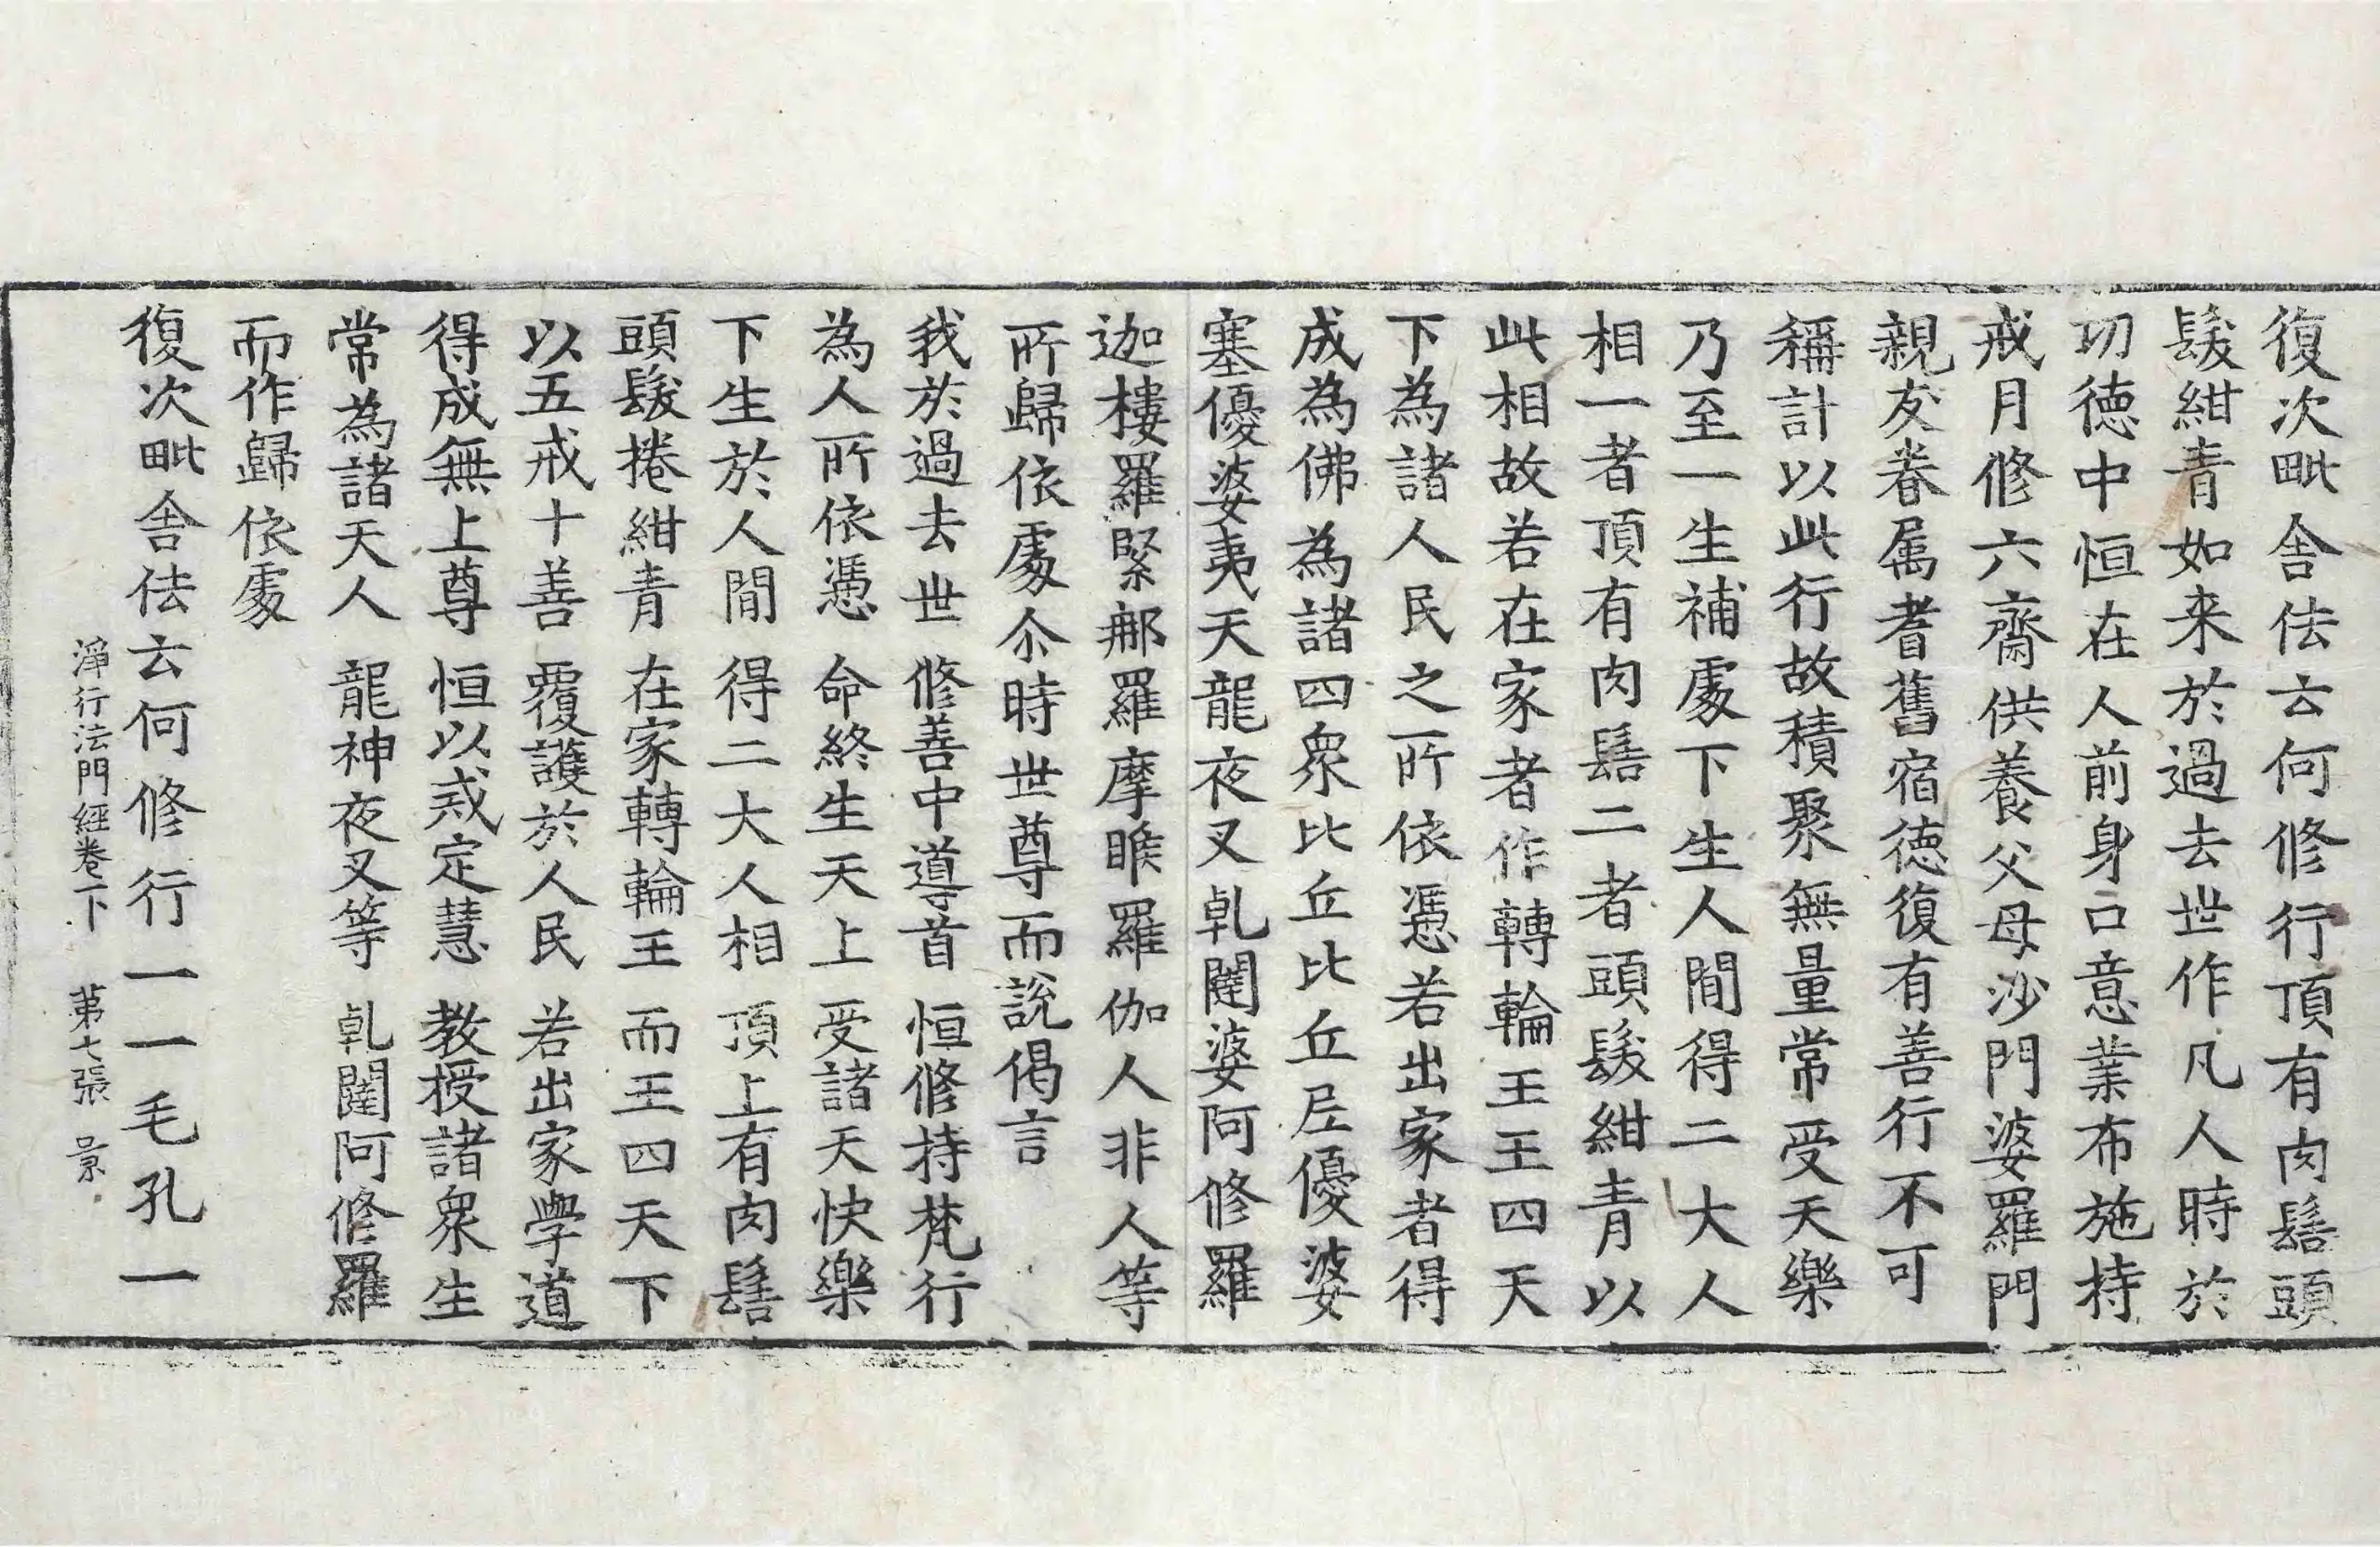 復次毗舍佉云何修行頂有肉髻頭
髮紺青如来於過去世作凡人時於
功徳中恒在人前身口意業布施持
戒月修六齋供養父母沙門婆羅門
親友眷属耆舊宿徳復有善行不可
稱計以此行故積聚無量常受天樂
乃至一生補處下生人間得二大人
相一者頂有肉髻二者頭髮紺青以
此相故若在家者作轉輪王王四天
下為諸人民之所依憑若出家者得
成為佛為諸四衆比丘比丘尼優婆
塞優婆夷天龍夜叉乹闥婆阿修羅
迦樓羅緊那羅摩睺羅伽人非人等
所歸依處尒時世尊而說偈言
我於過去世 修善中導首 恒修持梵行
為人所依憑 命終生天上 受諸天快樂
下生於人間 得二大人相 頂上有肉髻
頭髮捲紺青 在家轉輪王 而王四天下
以五戒十善 覆護於人民 若出家學道
得成無上尊 恒以戒定慧 教授諸衆生
常為諸天人 龍神夜叉等 乹闥阿修羅
而作歸依處
復次毗舍佉云何修行一一毛孔一
淨行法門經卷下 苐七張 景